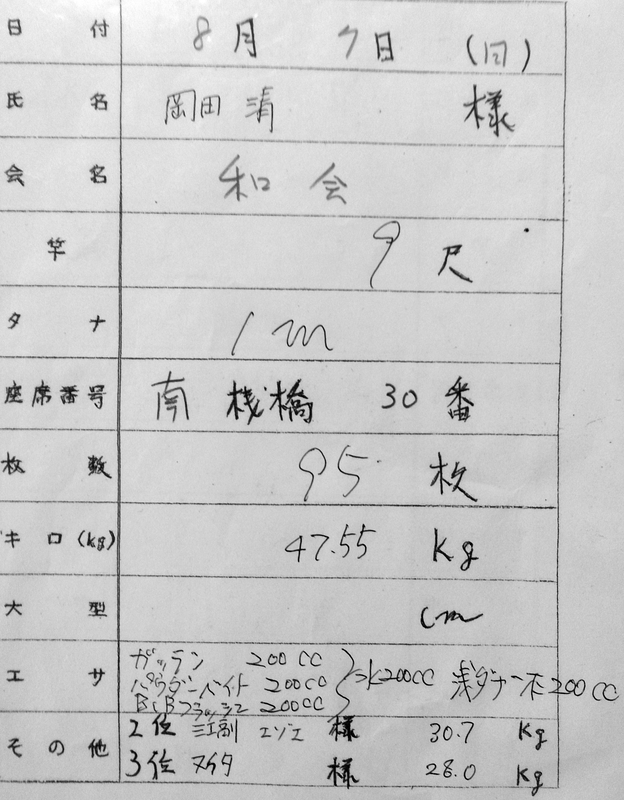 日付 8月 7日 (日)
氏名 岡田 清 様
会名 和会
竿 9尺
タナ 1m
座席番号 南 桟橋 30番
枚数 95 枚
キロ(kg) 47.55 Kg
大型 cm
エサ ガッテン 200cc
パウダーベイト 200cc 水200cc 浅ダナ一本200cc
BBフラッシュ 200cc
その他 2位 江副 様 30.7 Kg
3位 様 28.0 Kg